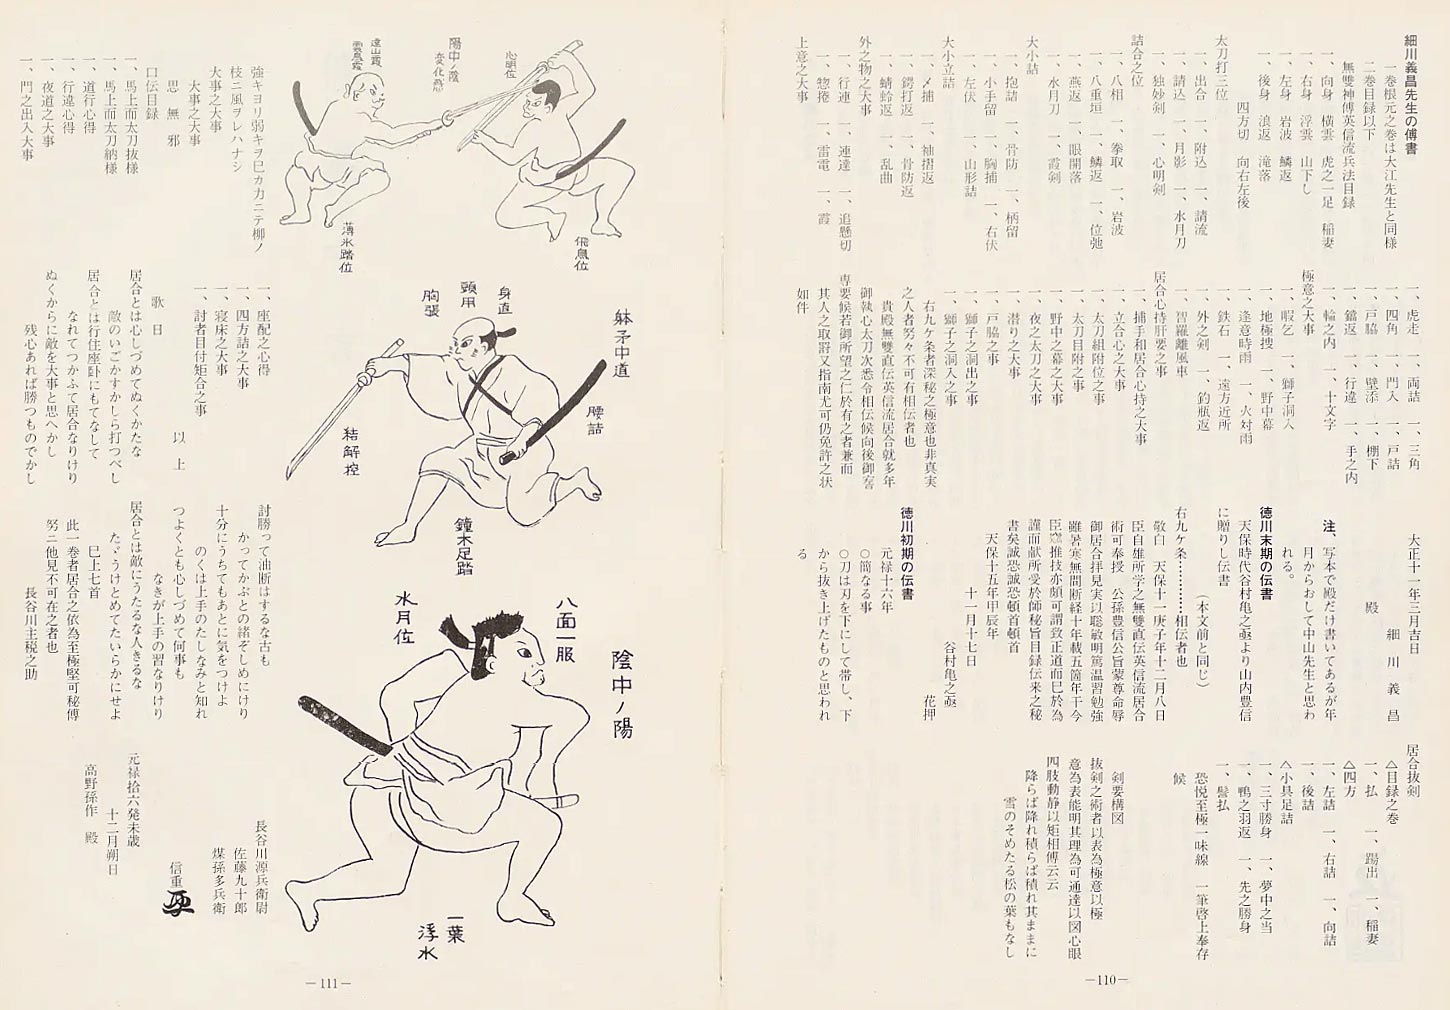 細川義昌先生の傳書
一巻根元之巻は大江先生と同様
二巻目録以下
無雙神傅英信流兵法目録
一、向身 横雲 虎之一足 稲妻
一、右身 浮雲 山下し
一、左身 岩波 鱗返
一、後身 浪返 滝落
四方切 向右左後
太刀打三位
一、出合 一、附込 一、請流
一、請込 一、月影 一、水月刀
一、独妙剣 一、心明剣
詰合之位
一、八相 一、拳取 一、岩波
一、八重垣 一、鱗返 一、位弛
一、燕返 一、眼開落
一、水月刀 一、霞剣
大小詰
一、抱詰 一、骨防 一、柄留
一、小手留 一、胸捕 一、右伏
一、左伏 一、山形詰
大小立詰
一、〆捕 一、袖摺返
一、鍔打返 一、骨防返
一、蜻蛉返 一、乱曲
外之物之大事
一、行連 一、連達 一、追懸切
一、惣捲 一、雷電 一、霞
上意之大事
一、虎走 一、両詰 一、三角
一、四角 一、門入 一、戸詰
一、戸脇 一、壁添 一、棚下
一、鐺返 一、行違 一、手之内
一、輪之内 一、十文字
極意之大事
一、暇乞 一、獅子洞入
一、地極捜 一、野中幕
一、逢意時雨 一、火対雨
一、鉄石 一、遠方近所
一、外之剣 一、釣瓶返
一、智羅離風車
居合心持肝要之事
一、捕手和居合心持之大事
一、立合心之大事
一、太刀組附位之事
一、太刀目附之事
一、野中之幕之大事
一、夜之太刀之大事
一、潜り之大事
一、戸脇之事
一、獅子之洞出之事
一、獅子之洞入之事
右九ヶ条者深秘之極意也非真実
之人者努々不可有相伝者也
貴殿無雙直伝英信流居合就多年
御執心太刀次悉令相伝候向後御嗜
専要候若御所望之仁於有之者兼而
其人之取罸又指南尤可仍免許之状
如件
大正十一年三月吉日
細川義昌
殿
注、写本で殿だけ書いてあるが年
月からおして中山先生と思わ
れる。
徳川末期の伝書
天保時代谷村亀之亟より山内豊信
に贈りし伝書
(本文前と同じ)
右九ケ条…………相伝者也
敬白 天保十一庚子年十二月八日
臣自雄所学之無雙直伝英信流居合
術可奉授 公孫豊信公旨蒙尊命辱
御居合拝見実以聡敏明篤温習勉強
雖暑寒無間断経十年載五箇年于今
臣窓推技亦頗可謂致正道而巳於為
謹而献所受於師秘旨目録伝来之秘
書矣誠恐誠恐頓首頓首
天保十五年甲辰年
十一月十七日
谷村亀之亟
花押
徳川初期の伝書
元禄十六年
○簡なる事
○刀は刃を下にして帯し、下
から抜き上げたものと思われ
る
居合抜剣
△目録之巻
一、払 一、踢出 一、稲妻
△四方
一、左詰 一、右詰 一、向詰
一、後詰
△小具足詰
一、三寸勝身 一、夢中之当
一、鴨之羽返 一、先之勝身
一、髪払
恐悦至極一味線 一筆啓上奉存
候
剣要構図
抜剣之術者以表為極意以極
意為表能明其理為可通達以図心眼
四肢動静以矩相傅云云
降らば降れ積らば積れ其ままに
雪のそめたる松の葉もなし
―110―
陽中ノ陰
変化ノ形
心明位
遠山霞
飛鳥位
薄氷踏位
躰矛中道
身直
頸用
胸張
腰詰
結解控
鐘木足踏
陰中ノ陽
八面一服
水月位
一葉
浮水
強キヨリ弱キヲ巳カ力ニテ柳ノ
枝ニ風ヲレハナシ
大事之大事
大事之大事
思無邪
口伝目録
一、馬上而太刀抜様
一、馬上而太刀納様
一、道行心得
一、行違心得
一、夜道之大事
一、門之出入大事
一、座配之心得
一、四方詰之大事
一、寝床之大事
一、討者目付矩合之事
以上
歌曰
居合とは心しづめてぬくかたな
敵のいごかすかしら打つべし
居合とは行住座臥にもてなして
なれてつかふて居合なりけり
ぬくからに敵を大事と思へかし
残心あれば勝つものでかし
討勝って油断はするな古も
かってかぶとの緒ぞしめにけり
十分にうちてもあとに気をつけよ
のくは上手のたしなみと知れ
つよくとも心しづめて何事も
なきが上手の習なりけり
居合とは敵にうたるな人きるな
たゞうけとめてたいらかにせよ
巳上七首
此一巻者居合之依為至極堅可秘傅
努ニ他見不可在之者也
長谷川主税之助
長谷川源兵衛尉
佐藤九十郎
煤孫多兵衛
信重
元禄拾六発未歳
十二月朔日
高野孫作 殿
―111―